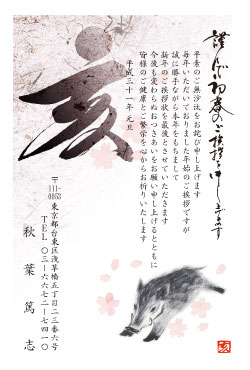 謹んで初春のご挨拶を申し上げます
平素のご無沙汰をお詫び申し上げます
毎年いただいておりました年始のご挨拶ですが
誠に勝手ながら本年をもちまして
新年のご挨拶状を最後とさせていただきます
今後も変わらぬおつきあいをお願い申し上げるとともに
皆様のご健康とご繁栄を心からお祈りいたします
平成三十一年 元旦
亥
〒111-0053
東京都台東区浅草橋五丁目二三番六号
TEL 〇三-六六七二-七四一〇
秋葉篤志
亥